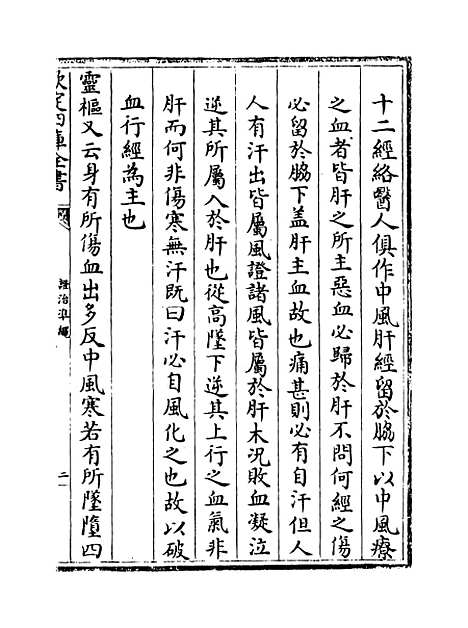 十二經絡醫人俱作中風肝經留於脇下以中風療
之血者皆肝之所主惡血必歸於肝不問何經之傷
必留於脇下盖肝主血故也痛甚則必有自汗但人
人有汗出皆屬風證諸風皆屬於肝木況敗血凝泣
逆其所屬入於肝也從高墜下逆其上行之血氣非
肝而何非傷寒無汗既曰汗必自風化之也故以破
血行經為主也
靈樞又云身有所傷血出多反中風寒若有所墜墮四
欽定四庫全書
證治凖繩
二